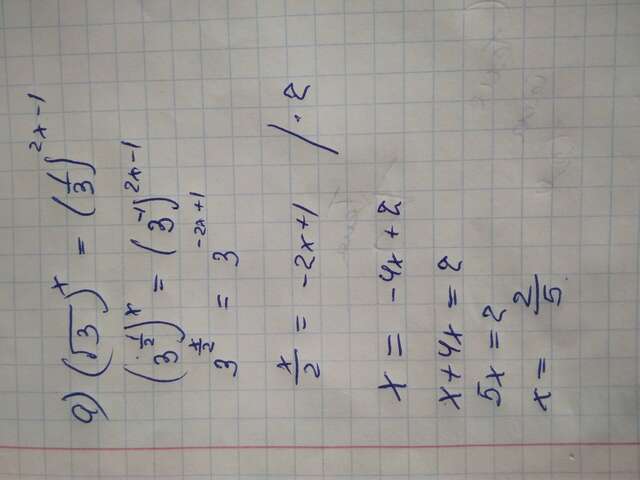 а) (√3)^x = (1/3)^(2x-1)
(3^(1/2))^x = (3^(-1))^(2x-1)
3^(x/2) = 3^(-2x+1)
x/2 = -2x+1 /·2
x = -4x+2
x+4x=2
5x=2
x = 2/5